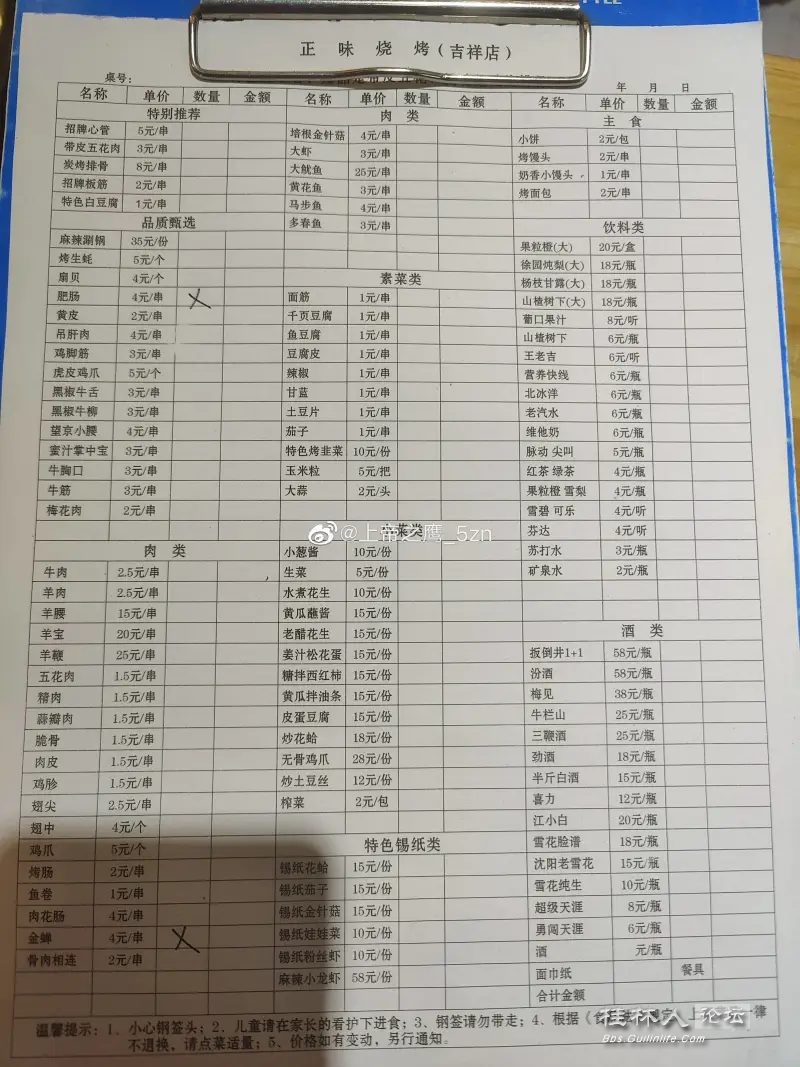 正味烧烤(吉祥店)
桌号:
年 月 日
名称 单价 数量 金额
特别推荐
招牌心管 5元/串
带皮五花肉 3元/串
炭烤排骨 8元/串
招牌板筋 2元/串
特色白豆腐 1元/串
品质甄选
麻辣涮锅 35元/份
烤生蚝 5元/个
扇贝 4元/个
肥肠 4元/串
黄皮 2元/串
吊肝肉 4元/串
鸡脚筋 3元/串
虎皮鸡爪 5元/个
黑椒牛舌 3元/串
黑椒牛柳 3元/串
望京小腰 4元/串
蜜汁掌中宝 3元/串
牛胸口 3元/串
牛筋 3元/串
梅花肉 2元/串
肉 类
牛肉 2.5元/串
羊肉 2.5元/串
羊腰 15元/串
羊宝 20元/串
羊鞭 25元/串
五花肉 1.5元/串
精肉 1.5元/串
蒜瓣肉 1.5元/串
脆骨 1.5元/串
肉皮 1.5元/串
鸡胗 1.5元/串
翅尖 2.5元/串
翅中 4元/个
鸡爪 5元/个
烤肠 2元/串
鱼卷 1元/串
肉花肠 4元/串
金蝉 4元/串
骨肉相连 2元/串
名称 单价 数量 金额
肉 类
培根金针菇 4元/串
大虾 3元/串
大鱿鱼 25元/串
黄花鱼 3元/串
马步鱼 4元/串
多春鱼 3元/串
素菜类
面筋 1元/串
千页豆腐 1元/串
鱼豆腐 1元/串
豆腐皮 1元/串
辣椒 1元/串
甘蓝 1元/串
土豆片 1元/串
茄子 1元/串
特色烤韭菜 10元/份
玉米粒 5元/把
大蒜 2元/头
菜类
小葱酱 10元/份
生菜 5元/份
水煮花生 10元/份
黄瓜蘸酱 15元/份
老醋花生 15元/份
姜汁松花蛋 15元/份
糖拌西红柿 15元/份
黄瓜拌油条 15元/份
皮蛋豆腐 15元/份
炒花蛤 18元/份
无骨鸡爪 28元/份
炒土豆丝 12元/份
榨菜 2元/包
特色锡纸类
锡纸花蛤 15元/份
锡纸茄子 15元/份
锡纸金针菇 15元/份
锡纸娃娃菜 10元/份
锡纸粉丝虾 10元/份
麻辣小龙虾 58元/份
名称 单价 数量 金额
主 食
小饼 2元/包
烤馒头 2元/串
奶香小馒头 1元/串
烤面包 2元/串
饮料类
果粒橙(大) 20元/盒
徐园炖梨(大) 18元/瓶
杨枝甘露(大) 18元/瓶
山楂树下(大) 18元/瓶
葡口果汁 8元/听
山楂树下 6元/瓶
王老吉 6元/听
营养快线 6元/瓶
北冰洋 6元/瓶
老汽水 6元/瓶
维他奶 6元/瓶
脉动 尖叫 5元/瓶
红茶 绿茶 4元/瓶
果粒橙 雪梨 4元/瓶
雪碧 可乐 4元/听
芬达 4元/听
苏打水 3元/瓶
矿泉水 2元/瓶
酒 类
扳倒井1+1 58元/瓶
汾酒 58元/瓶
梅见 38元/瓶
牛栏山 25元/瓶
三鞭酒 25元/瓶
劲酒 18元/瓶
半斤白酒 15元/瓶
喜力 12元/瓶
江小白 20元/瓶
雪花脸谱 18元/瓶
沈阳老雪花 15元/瓶
雪花纯生 10元/瓶
超级天涯 8元/瓶
勇闯天涯 6元/瓶
酒 元/瓶
面巾纸 餐具
合计金额
温馨提示:1、小心钢签头;2、儿童请在家长的看护下进食;3、钢签请勿带走;4、根据 上 一律
不退换,请点菜适量;5、价格如有变动,另行通知。
@上帝之鹰_5zn
桂林人论坛
Bbs.Guilinlife.Com